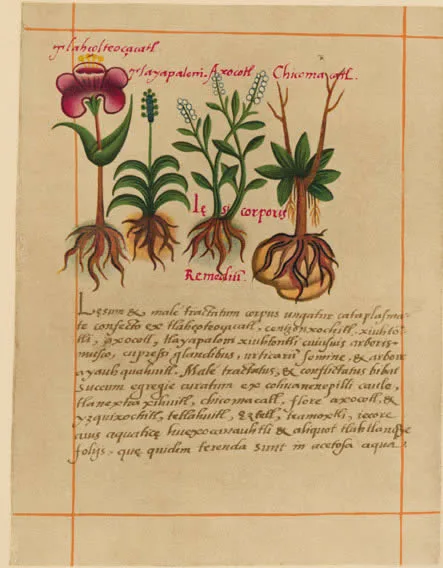 Tlahçolteoçacatl.
Tlayapaloni. Axocotl. Chicomacatl.
Lęsi corporis
Remediū.
Lęsum & male tractatum corpus ungatur cataplasma-
te confecto ex tlahçolteoçacatl, centzonxochitl, xiuhton-
tli, axocotl, tlayapaloni xiuhtontli cuiusvis arboris
musco, cupressi glandibus, urticarū semine, & arbore
ayauhquahuitl. Male tractatus, & conflictatus bibat
succum egregie curatum ex cohuanenepilli caule,
tlanextia xihuitl, chicomacatl, flore axocotl, &
yzquixochitl, tetlahuitl, eztetl, teamoxtli, iecore
avis aquaticę huexocanauhtli & aliquot
folijs, quę quidem terenda sunt in acetosa aqua.